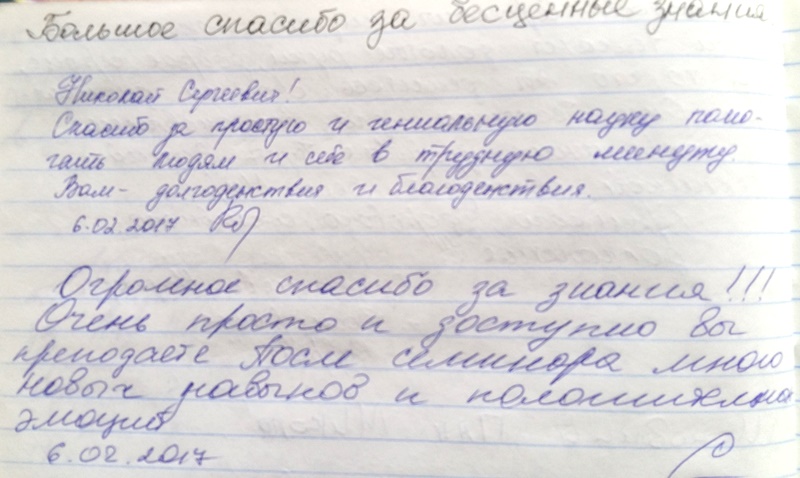 Большое спасибо за бесценные знания
Николай Сергеевич!
Спасибо за простую и гениальную науку помо-
гать людям и себе в трудную минуту.
Вам - долгоденствия и благоденствия.
6.02.2017
Огромное спасибо за знания!!!
Очень просто и доступно Вы
преподаете После семинара много
новых навыков и положительна
эмоций
6.02.2017